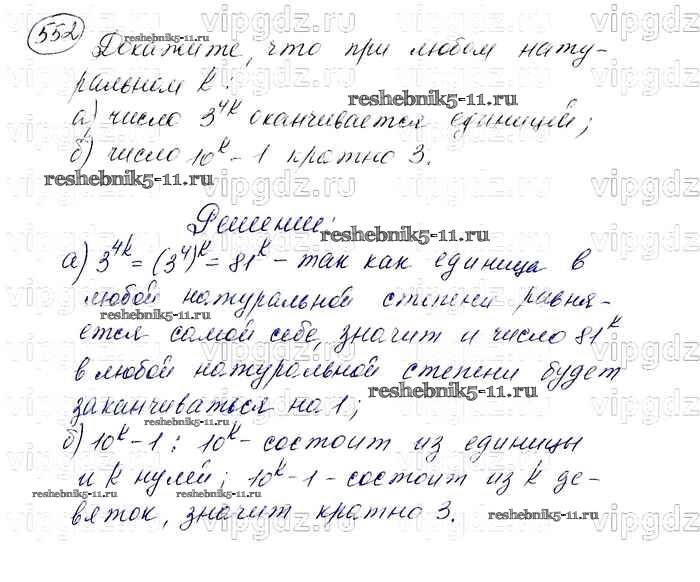 552
Докажите, что при любом нату-
ральном k:
а) число 3^4k оканчивается единицей;
б) число 10^k - 1 кратно 3.
Решение:
а) 3^4k = (3^4)^k = 81^k - так как единица в
любой натуральной степени равня-
ется самой себе, значит и число 81^k
в любой натуральной степени будет
заканчиваться на 1;
б) 10^k - 1 : 10^k - состоит из единицы
и k нулей; 10^k - 1 - состоит из k де-
вяток, значит кратно 3.
vipgdz.ru
reshebnik5-11.ru